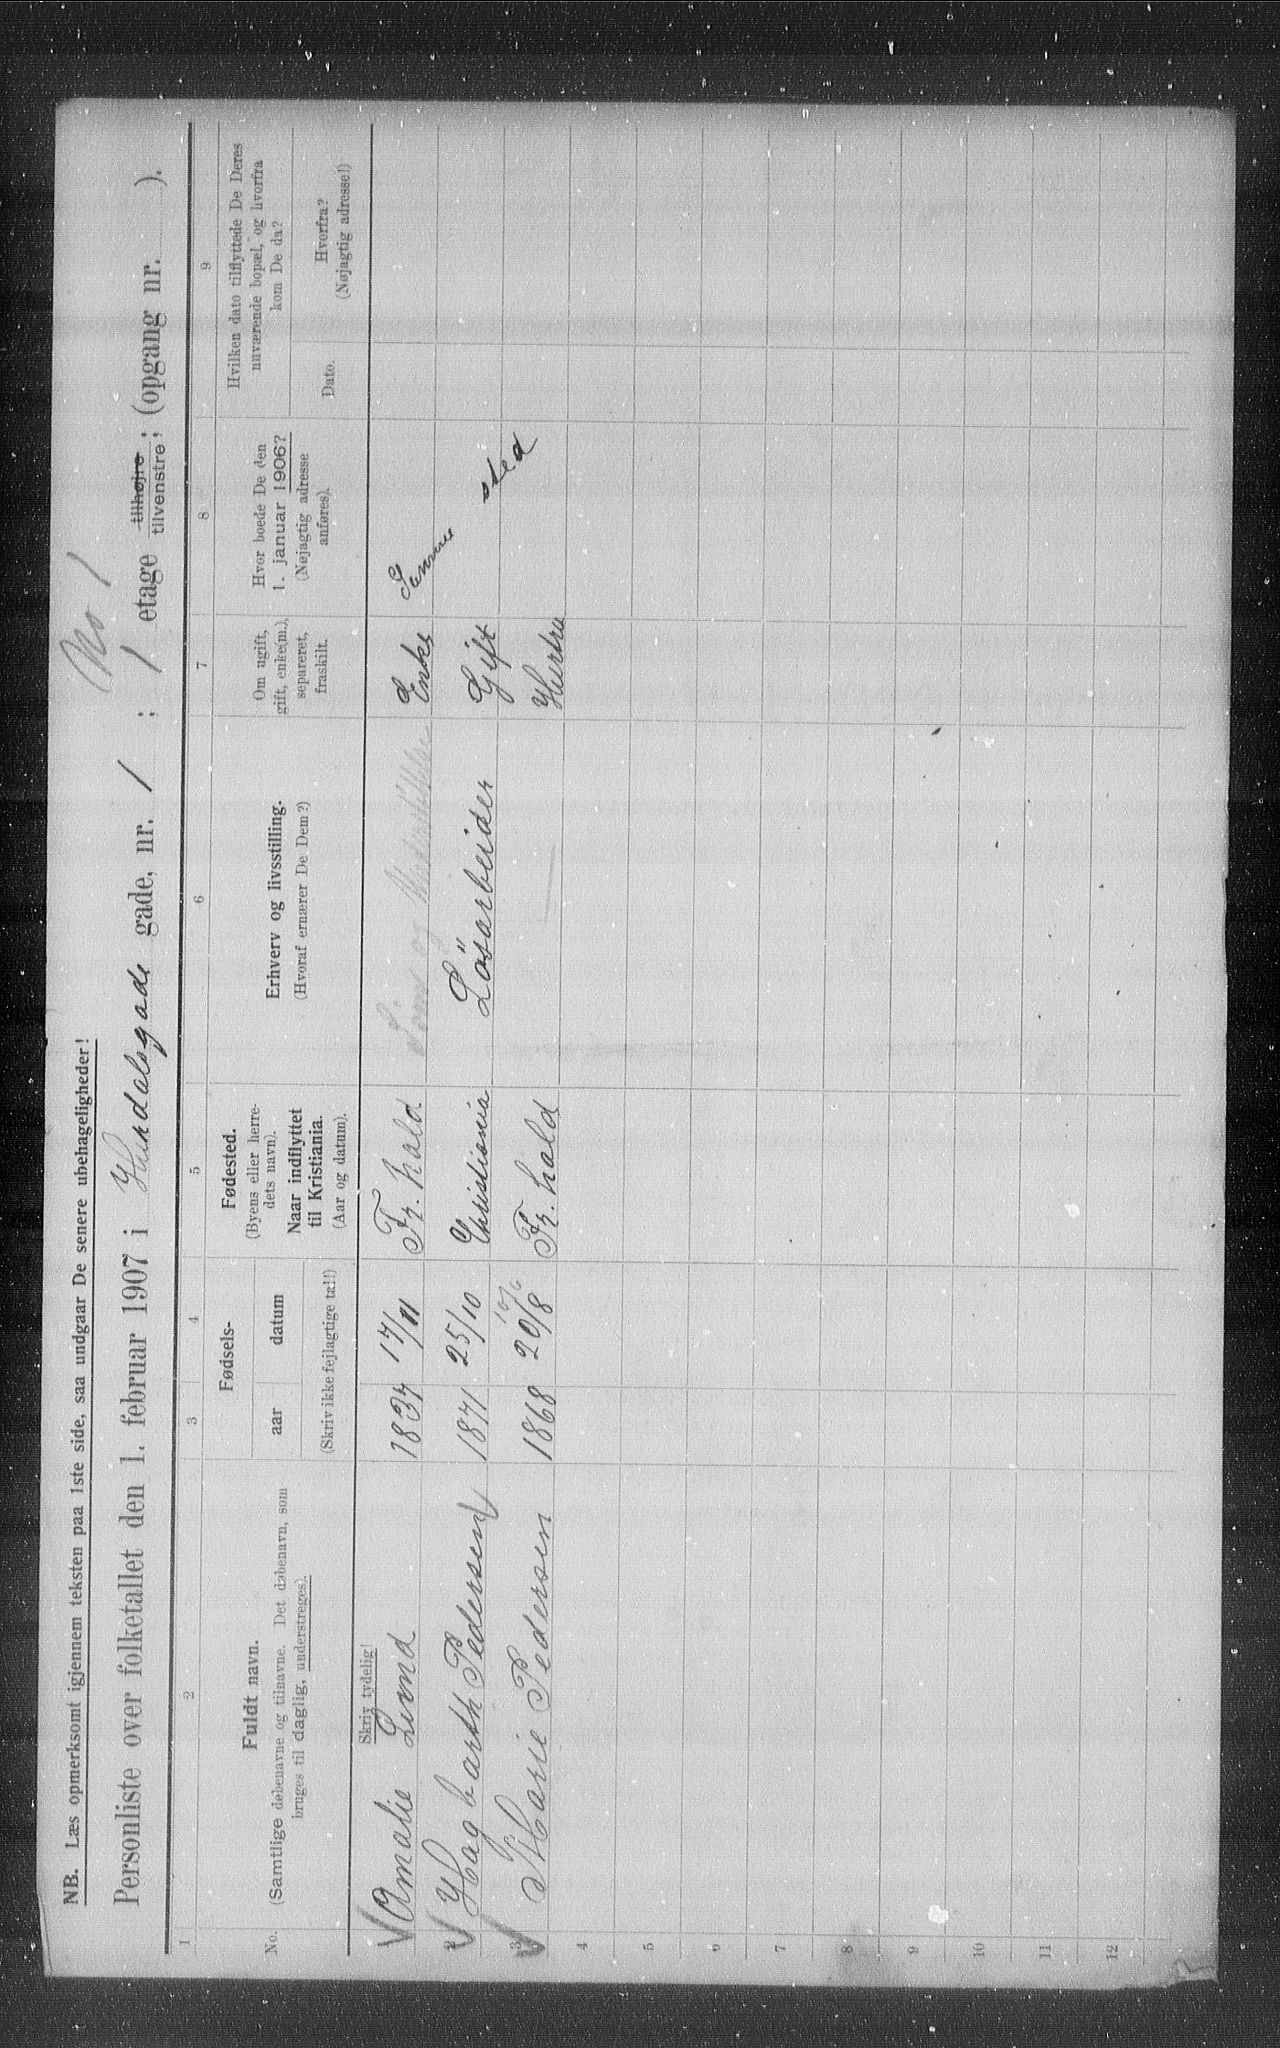 NB. Læs opmerksomt igjennem teksten paa 1ste side, saa undgaar De senere ubehageligheder!
No 1
Personliste over folketallet den 1. februar 1907 i Hurdalsgade gade, nr. 1 ; 1 etage tilhøjre tilvenstre; (opgang nr. ).
1 2 3 4 5 6 7 8 9
No.
Fuldt navn.
(Samtlige døbenavne og tilnavne. Det døbenavn, som
bruges til daglig, understreges).
Fødsels-
aar datum
(Skriv ikke fejlagtige tal!)
Fødested.
(Byens eller herre-
dets navn).
Naar indflyttet
til Kristiania.
(Aar og datum).
Erhverv og livsstilling.
(Hvoraf ernærer De Dem?)
Om ugift,
gift, enke(m.),
separeret,
fraskilt.
Hvor boede De den
1. januar 1906?
(Nøjagtig adresse
anføres).
Hvilken dato tilflyttede De Deres
nuværende bopæl, og hvorfra
kom De da?
Dato.
Hvorfra?
(Nøjagtig adresse!)
Skriv tydelig!
Amalie Lund 1834 17/11 Fr. hald og Enke Samme
2 Hagbarth Pedersen 1871 25/10 Christiania Lösarbeider Gift sted
3 Marie Pedersen 1868 20/8 Fr. hald Hustru
4
5
6
7
8
9
10
11
12